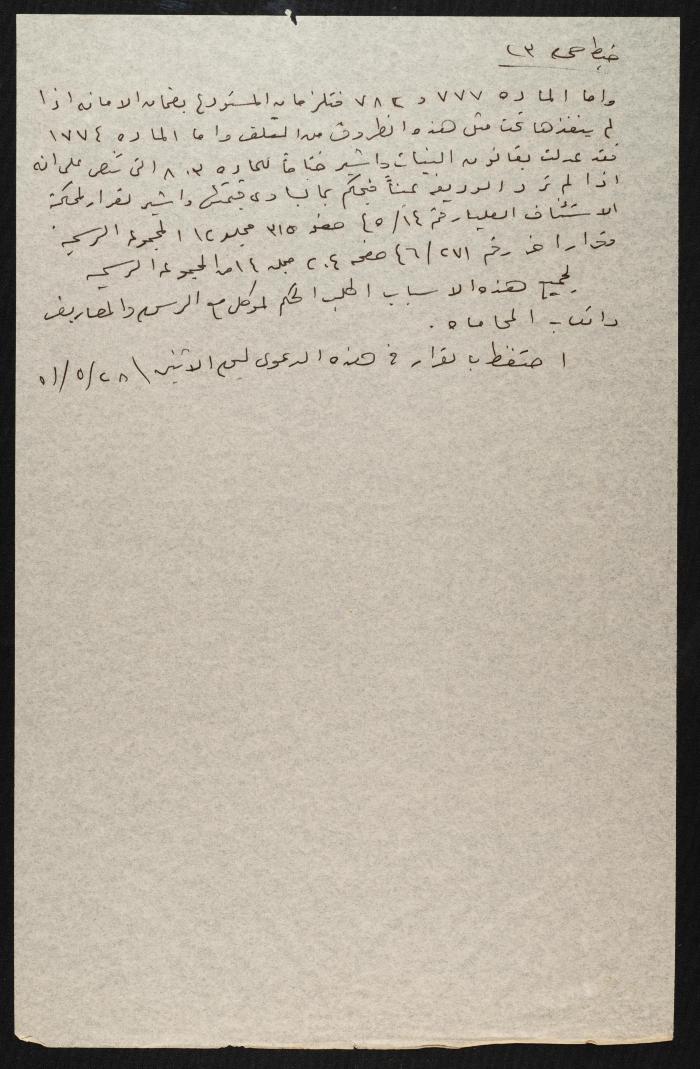 ضبط ص ٢٣
واما الماده ٧٧٧ و ٧٨٢ فتلزمان المستودع بضمان الامانه اذا
لم ينقذها تحت مثل هذه الظروف من التلف واما الماده ١٧٧٤
فقد عدلت بقانون البينات واشير ختاماً للماده ٨٠٣ التي تنص على انه
اذا لم ترد الوديعه عيناً فيحكم بما يساوي قيمتها واشير لقرار محكمة
الاستئناف العليا رقم ٤٥/١٤ صفحه ٣١٥ مجلد ١٢ المجموعه الرسميه
وقرارا اخر رقم ٤٦/٢٧١ صفحه ٢٠٤ مجلد ١٤ من المجموعه الرسميه
لجميع هذه الاسباب اطلب الحكم لموكلي مع الرسوم والمصاريف
واتعاب المحاماه .
احتفظ بالقرار في هذه الدعوى ليوم الاثنين ٥١/٥/٢٨